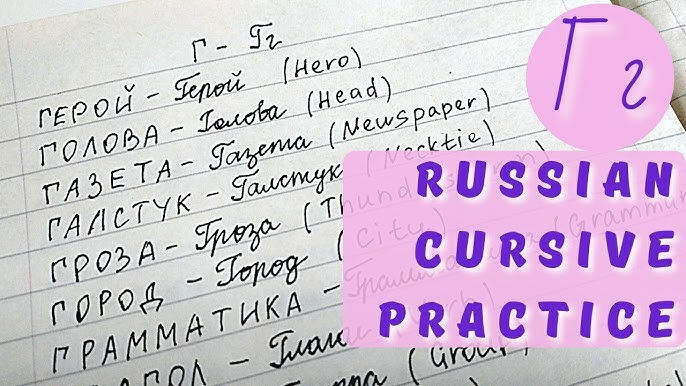 Г - Гг
ГЕРОЙ - Герой (Hero)
ГОЛОВА - Голова (Head)
ГАЗЕТА - Газета (Newspaper)
ГАЛСТУК - Галстук (Necktie)
ГРОЗА - Гроза
ГОРОД - Город (City)
ГРАММАТИКА -
Глагол
(Group)
Гг
RUSSIAN
CURSIVE
PRACTICE